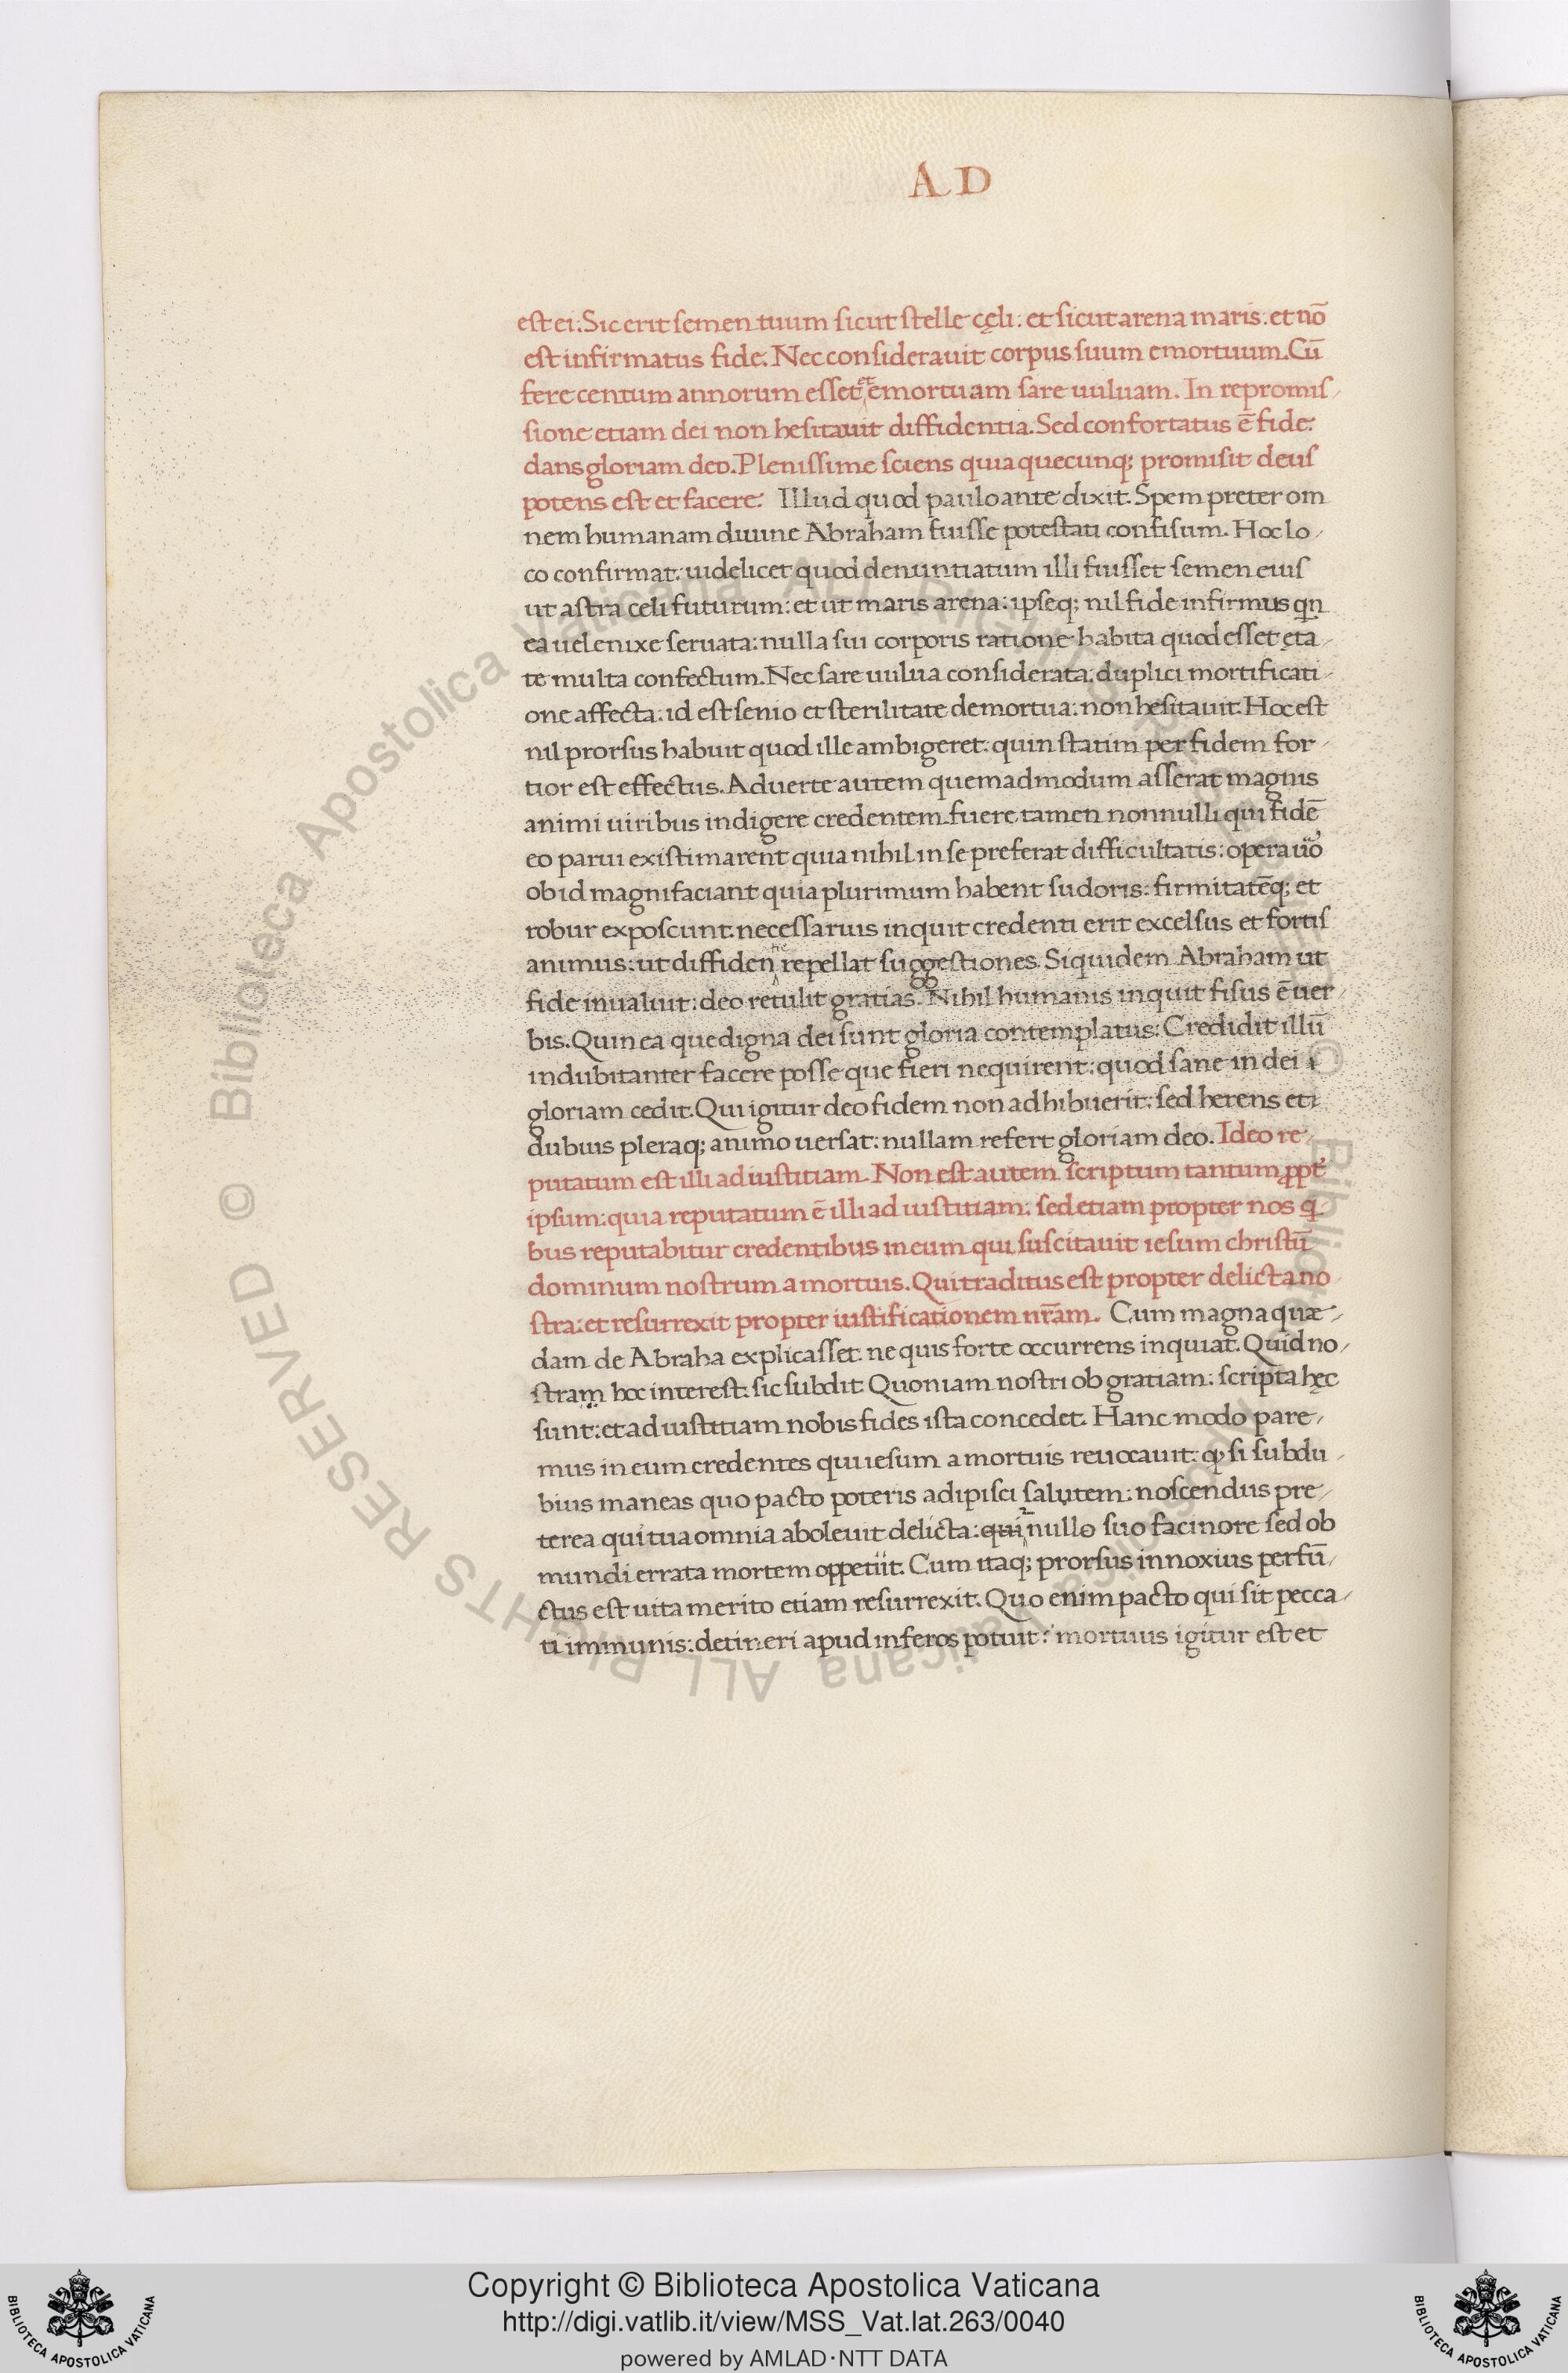 A D
est ei: Sic erit semen tuum sicut stelle cęli: et sicut arena maris: et nō
est infirmatus fide: Nec considerauit corpus suum emortuum. Cū
fere centum annorum esset et emortuam sare uuluam. In repromis/
sione etiam dei non hesitauit diffidentia. Sed confortatus ē fide:
dans gloriam deo. Plenissime sciens quia quecunq; promisit deus
potens est et facere. Illud quod paulo ante dixit. Spem preter om
nem humanam diuine Abraham fuisse potestati confisum. Hoc lo/
co confirmat: uidelicet quod denuntiatum illi fuisset semen eius
ut astra celi futurum: et ut maris arena: ipseq; nil fide infirmus qn
ea uel enixe seruata: nulla sui corporis ratione habita quod esset ęta/
te multa confectum. Nec sare uulua considerata: duplici mortificati/
one affecta: id est senio et sterilitate demortua: non hesitauit. Hoc est
nil prorsus habuit quod ille ambigeret: quin statim per fidem for/
tior est effectus. Aduerte autem quemadmodum asserat magnis
animi uiribus indigere credentem. fuere tamen nonnulli qui fidē
eo parui existimarent quia nihil in se preferat difficultatis: opera uo
ob id magnifaciant quia plurimum habent sudoris: firmitatēq; et
robur exposcunt. necessarius inquit credenti erit excelsus et fortis
animus: ut diffiden repellat suggestiones. Siquidem Abraham ut
fide inualuit: deo retulit gratias. Nihil humanis inquit fisus ē uer/
bis. Quin ea que digna dei sunt gloria contemplatus: Credidit illū
indubitanter facere posse que fieri nequirent: quod sane in dei
gloriam cedit. Qui igitur deo fidem non adhibuerit: sed herens eti
dubius pleraq; animo uersat: nullam refert gloriam deo. Ideo re/
putatum est illi ad iustitiam. Non est autem scriptum tantum ppt
ipsum: quia reputatum ē illi ad iustitiam: sed etiam propter nos q
bus reputabitur credentibus in eum qui suscitauit iesum christū
dominum nostrum a mortuis. Qui traditus est propter delicta no
stra: et resurrexit propter iustificationem nr̄am. Cum magna quæ/
dam de Abraha explicasset. ne quis forte occurrens inquiat. Quid no/
stram hoc interest: sic subdit. Quoniam nostri ob gratiam: scripta hęc
sunt: et ad iustitiam nobis fides ista concedet. Hanc modo pare/
mus in eum credentes qui iesum a mortuis reuocauit: q si subdu/
bius maneas quo pacto poteris adipisci salutem: noscendus pre/
terea qui tua omnia aboleuit delicta: qui nullo suo facinore sed ob
mundi errata mortem oppetiit. Cum itaq; prorsus innoxius perfū/
ctus est uita merito etiam resurrexit. Quo enim pacto qui sit pecca/
ti immunis: detineri apud inferos potuit? mortuus igitur est et
© Biblioteca Apostolica Vaticana ALL RIGHTS RESERVED
© Biblioteca Apostolica Vaticana ALL RIGHTS RESERVED
BIBLIOTECA APOSTOLICA VATICANA
Copyright © Biblioteca Apostolica Vaticana
http://digi.vatlib.it/view/MSS_Vat.lat.263/0040
powered by AMLAD·NTT DATA
BIBLIOTECA APOSTOLICA VATICANA